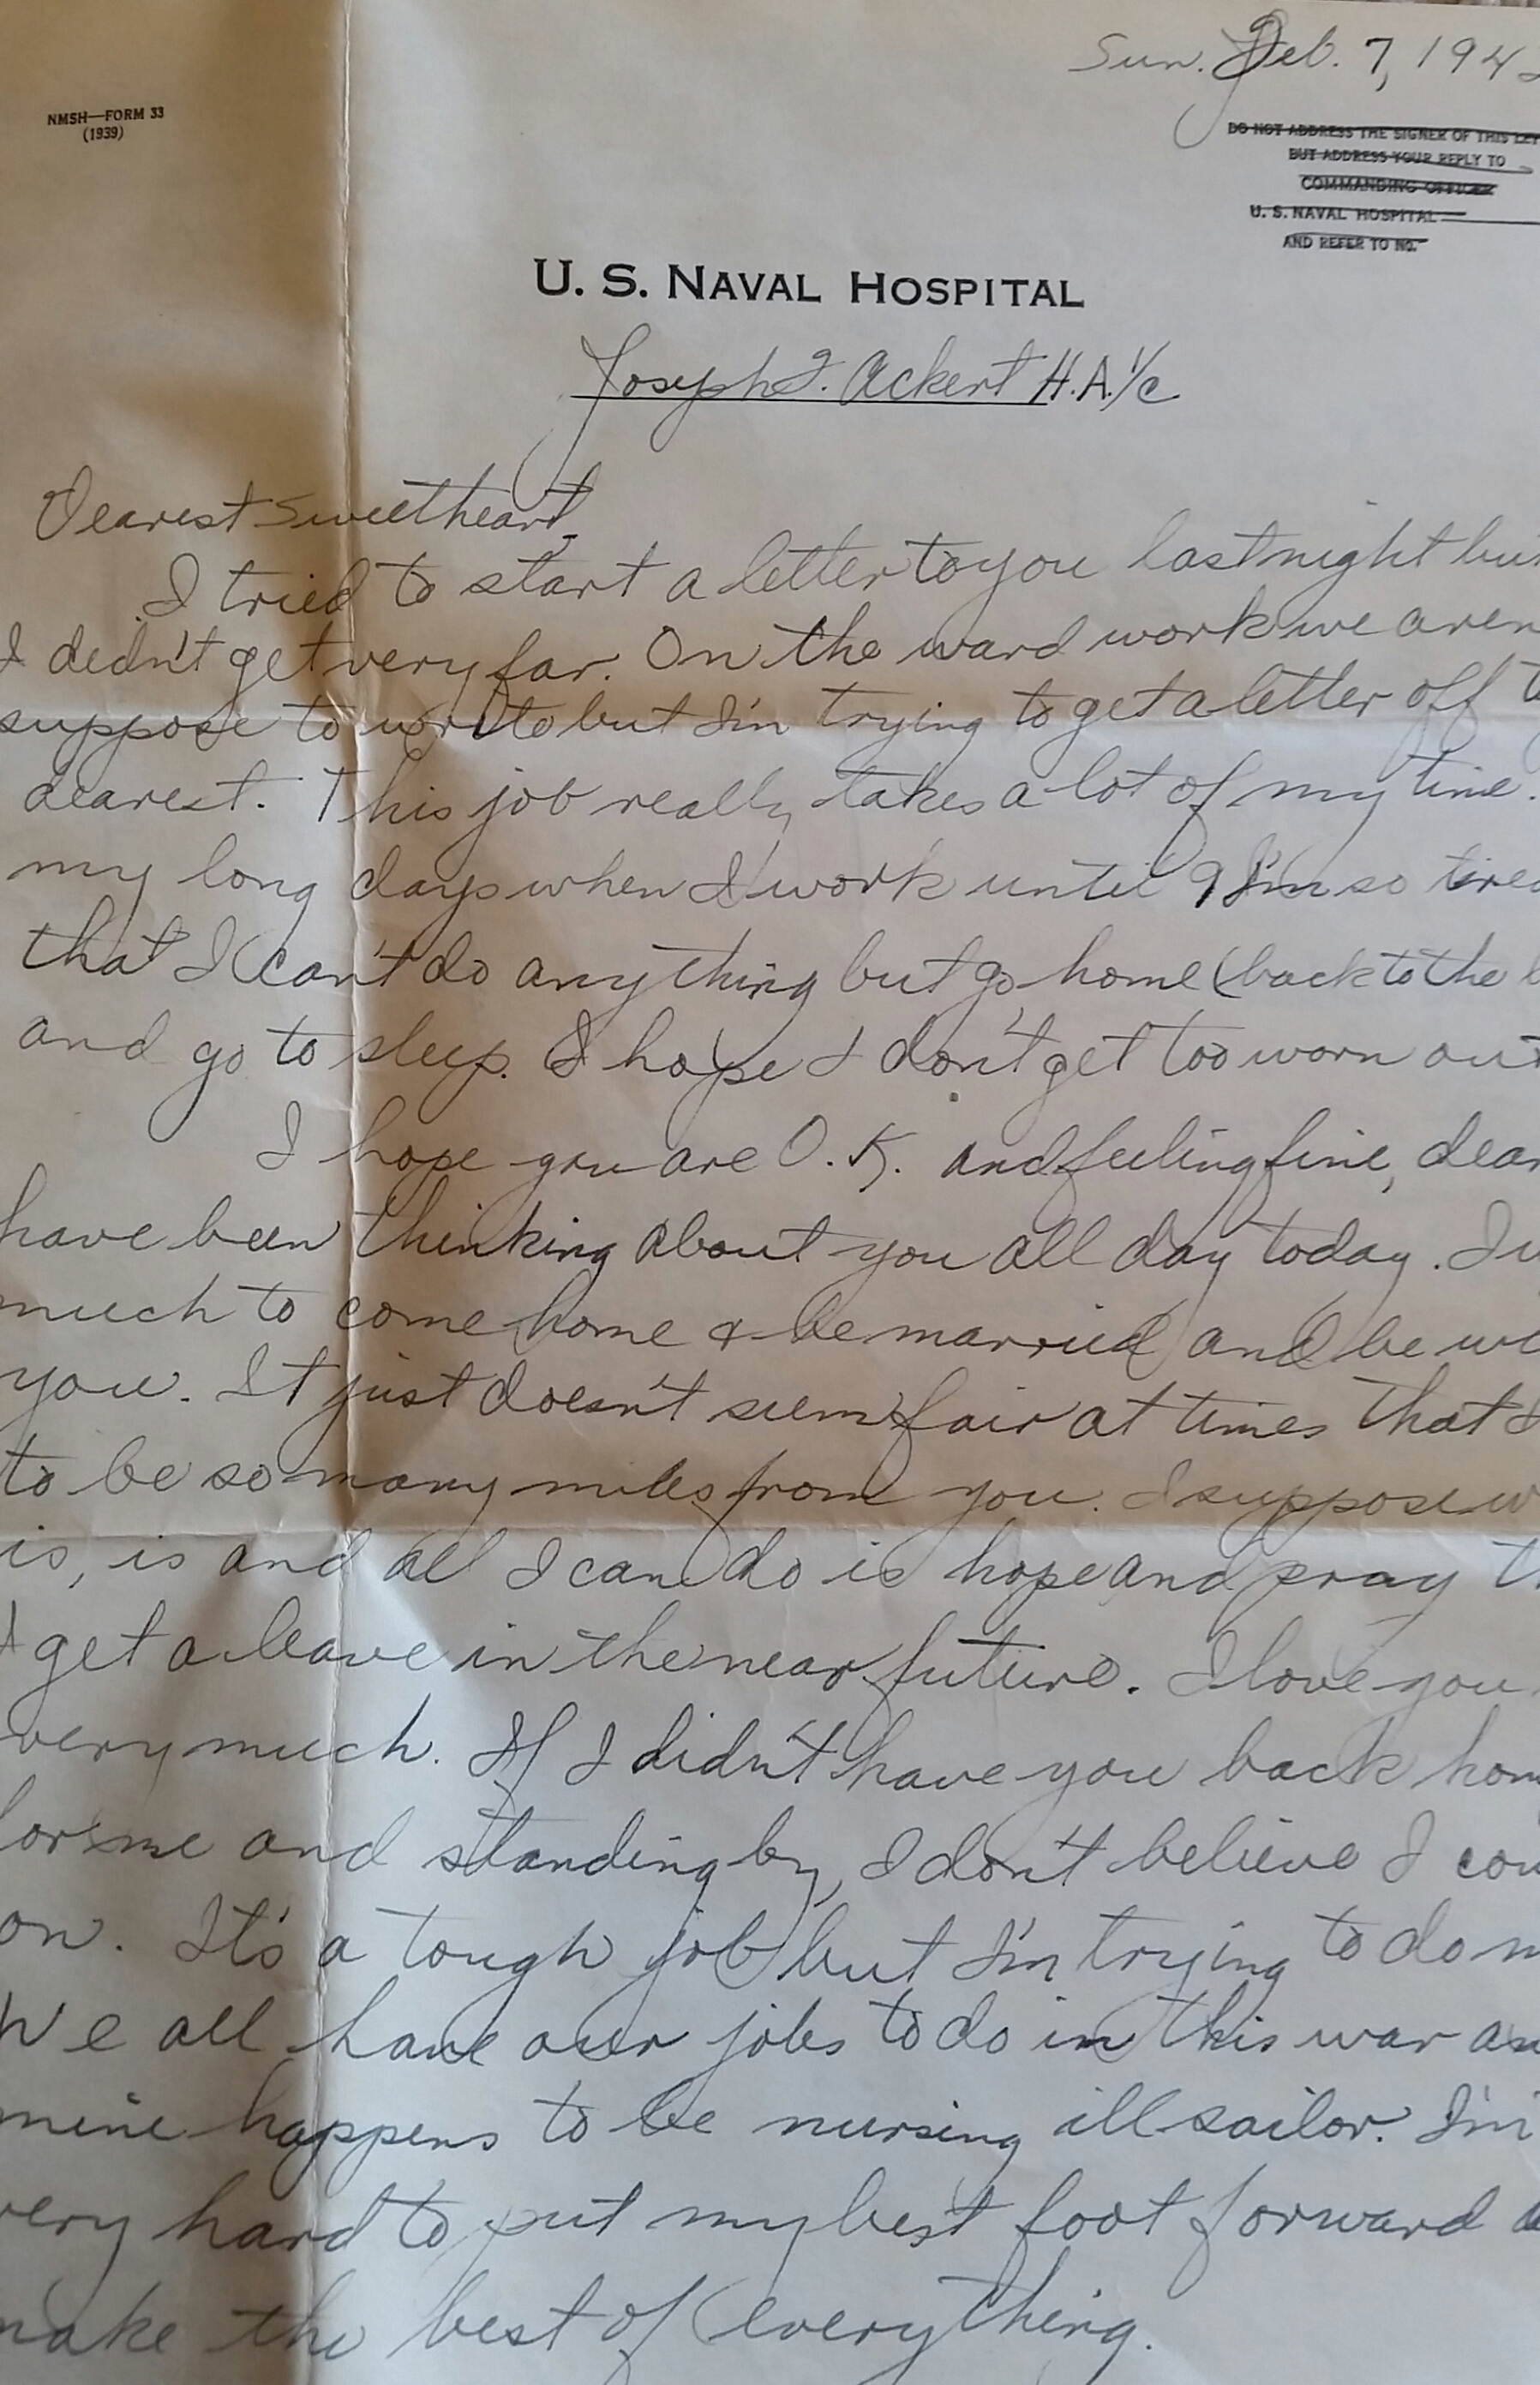 Sun. Feb. 7, 194
NMSH—FORM 33
(1939)
DO NOT ADDRESS THE SIGNER OF THIS LET
BUT ADDRESS YOUR REPLY TO
COMMANDING OFFICER
U. S. NAVAL HOSPITAL
AND REFER TO NO.
U. S. NAVAL HOSPITAL
Joseph J. Ackert H.A. 1/c
Dearest Sweetheart,
I tried to start a letter to you last night but
I didn't get very far. On the ward work we aren
suppose to write but I'm trying to get a letter off
dearest. This job really takes a lot of my time.
my long days when I work until 9 I'm so tired
that I can't do anything but go home (back to the
and go to sleep. I hope I don't get too worn out
I hope you are O.K. and feeling fine, dear
have been thinking about you all day today. I
much to come home & be married and be wi
you. It just doesn't seem fair at times that I
to be so many miles from you. I suppose w
is, is and all I can do is hope and pray th
I get a leave in the near future. I love you
very much. If I didn't have you back hom
for me and standing by, I don't believe I cou
on. It's a tough job but I'm trying to do m
We all have our jobs to do in this war an
mine happens to be nursing ill sailor. I'm
very hard to put my best foot forward a
make the best of everything.